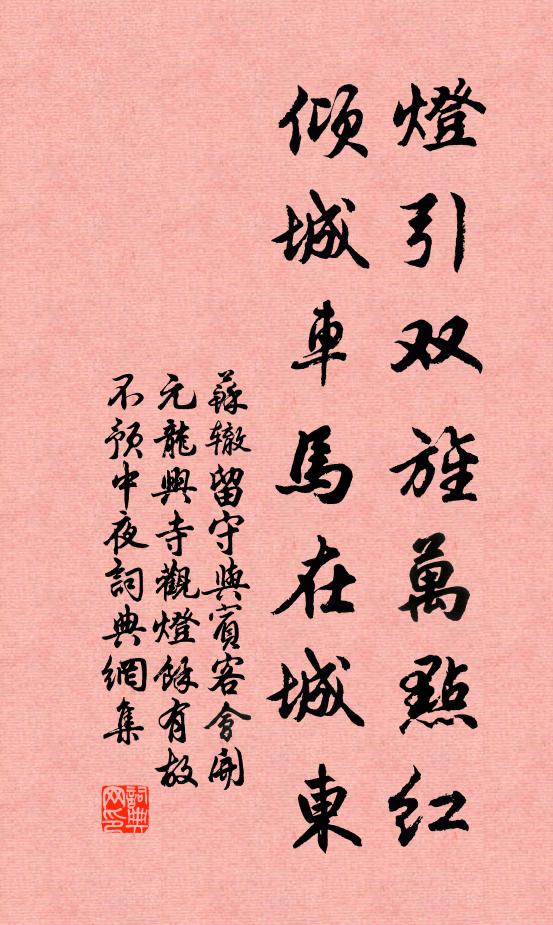 燈引双旌萬點红
倾城車馬在城東
蘇辙留守與賓客會開
元龍興寺觀燈餘有故
不預中夜詞典網集
詞典网印